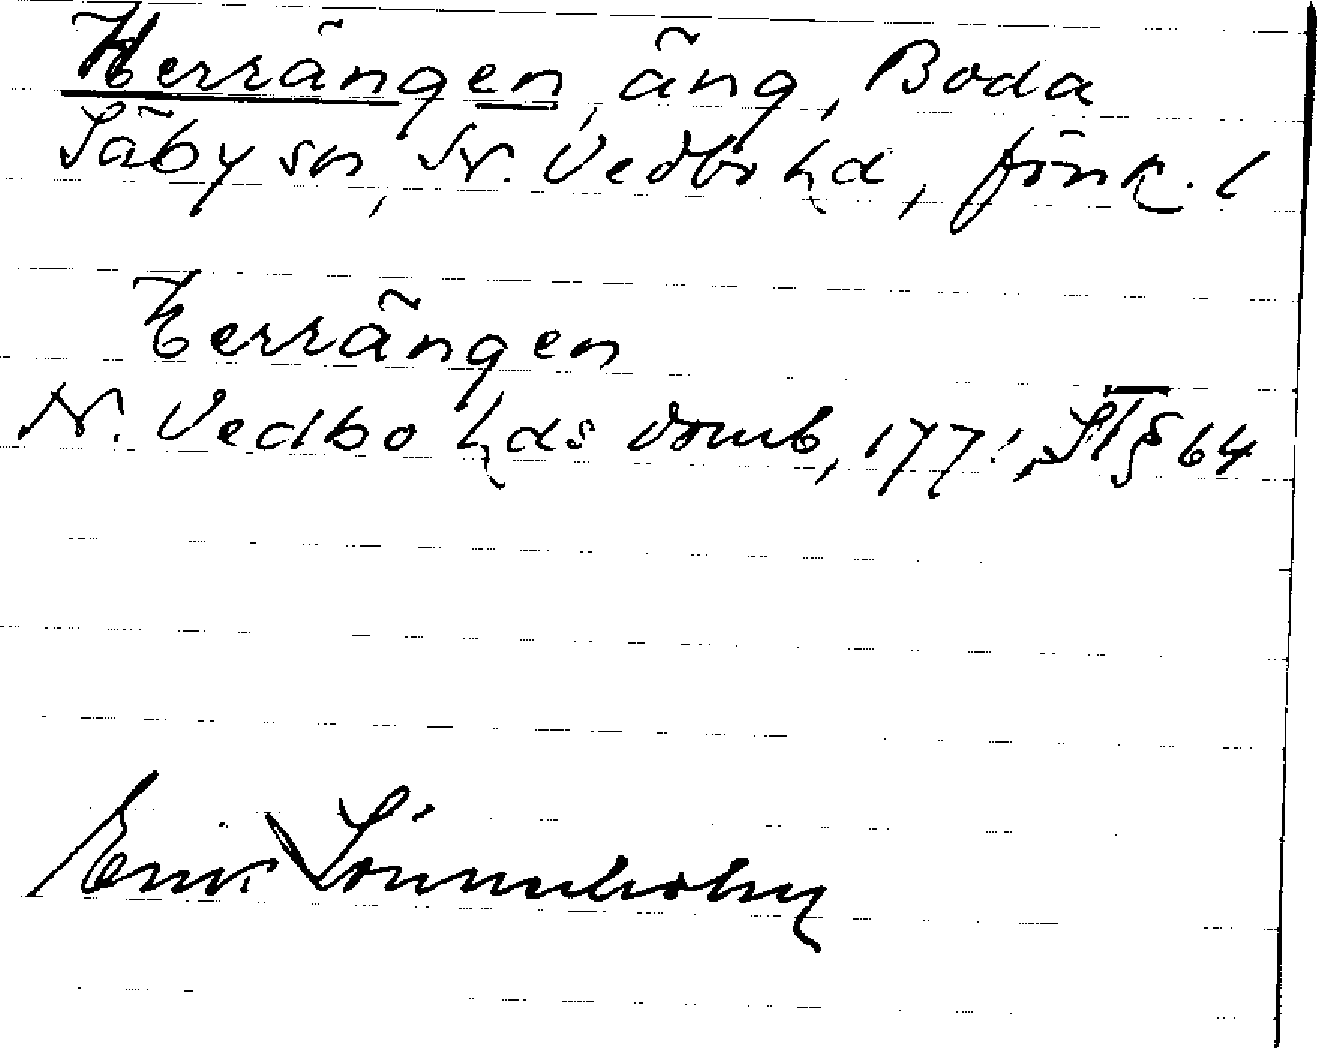 Herrängen, äng, Boda
Säby sn, N. Vedbo hd, Jönk. l
Herrängen
N. Vedbo hds domb, 177 ST § 64
Erik Lönnholm